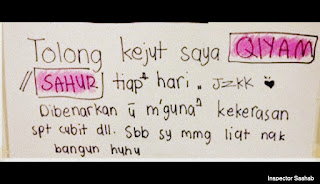 Tolong kejut saya QIYAM
// SAHUR tiap² hari. JZKK ♥
Dibenarkan ū m'guna" kekerasan
spt cubit dll. Sbb sy mmg liat nak
bangun huhu
Inspector Saahab